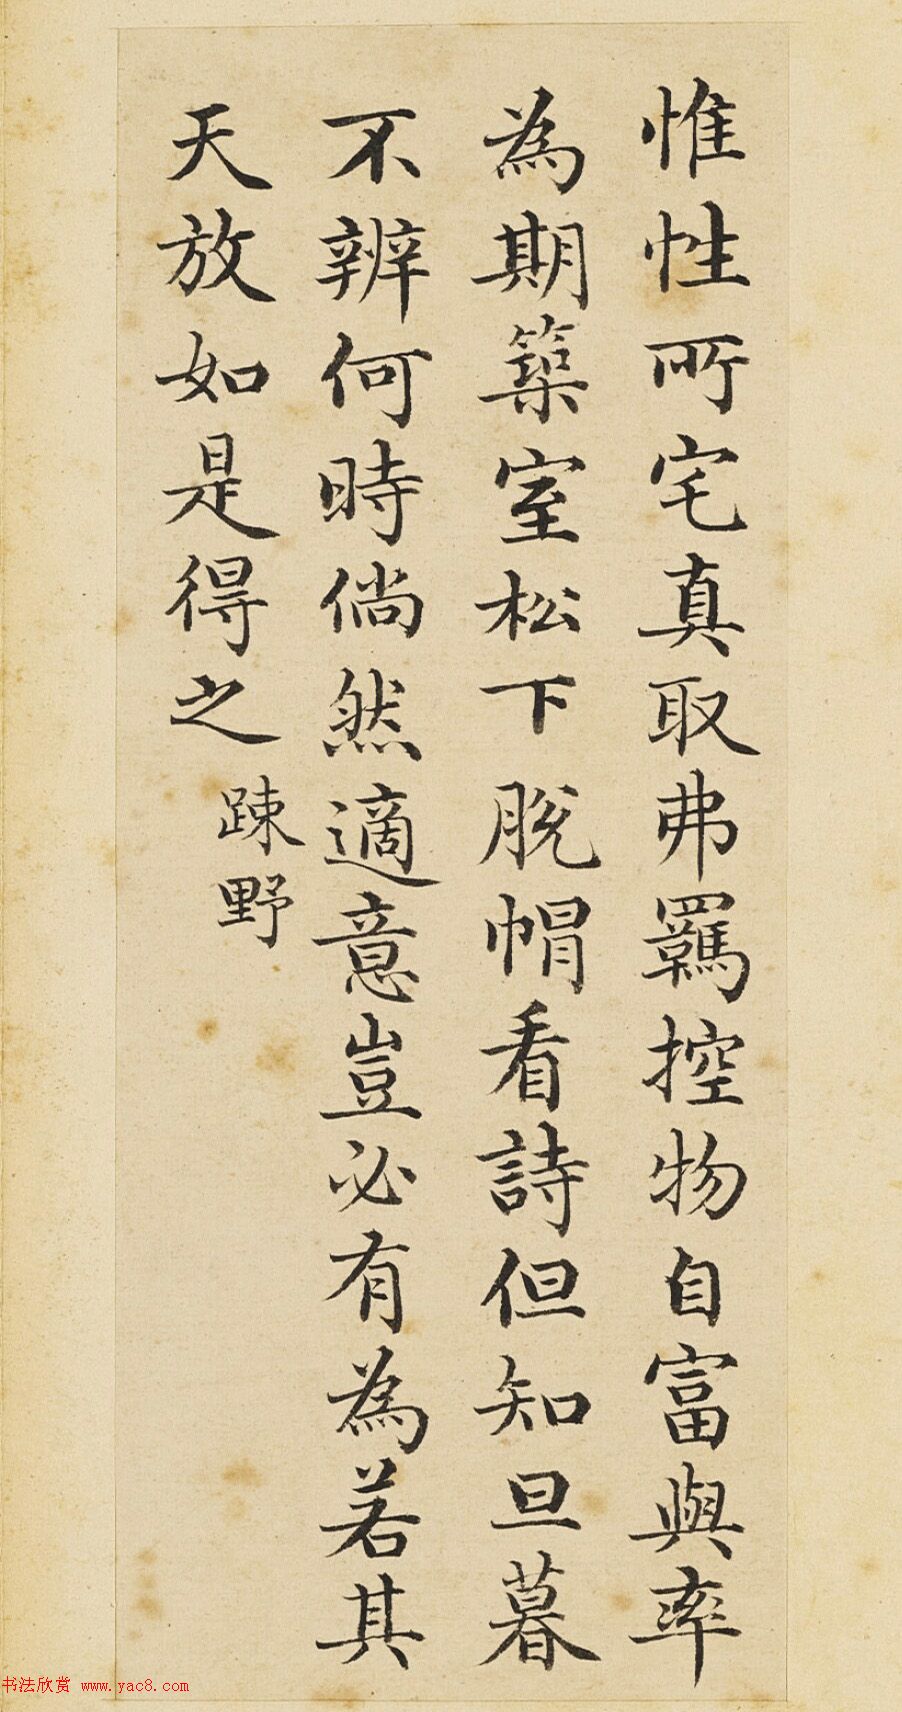 惟性所宅真取弗羈控物自富與率
為期築室松下脫帽看詩但知旦暮
不辨何時倘然適意豈必有為若其
天放如是得之
疎野
书法欣赏 www.yac8.com